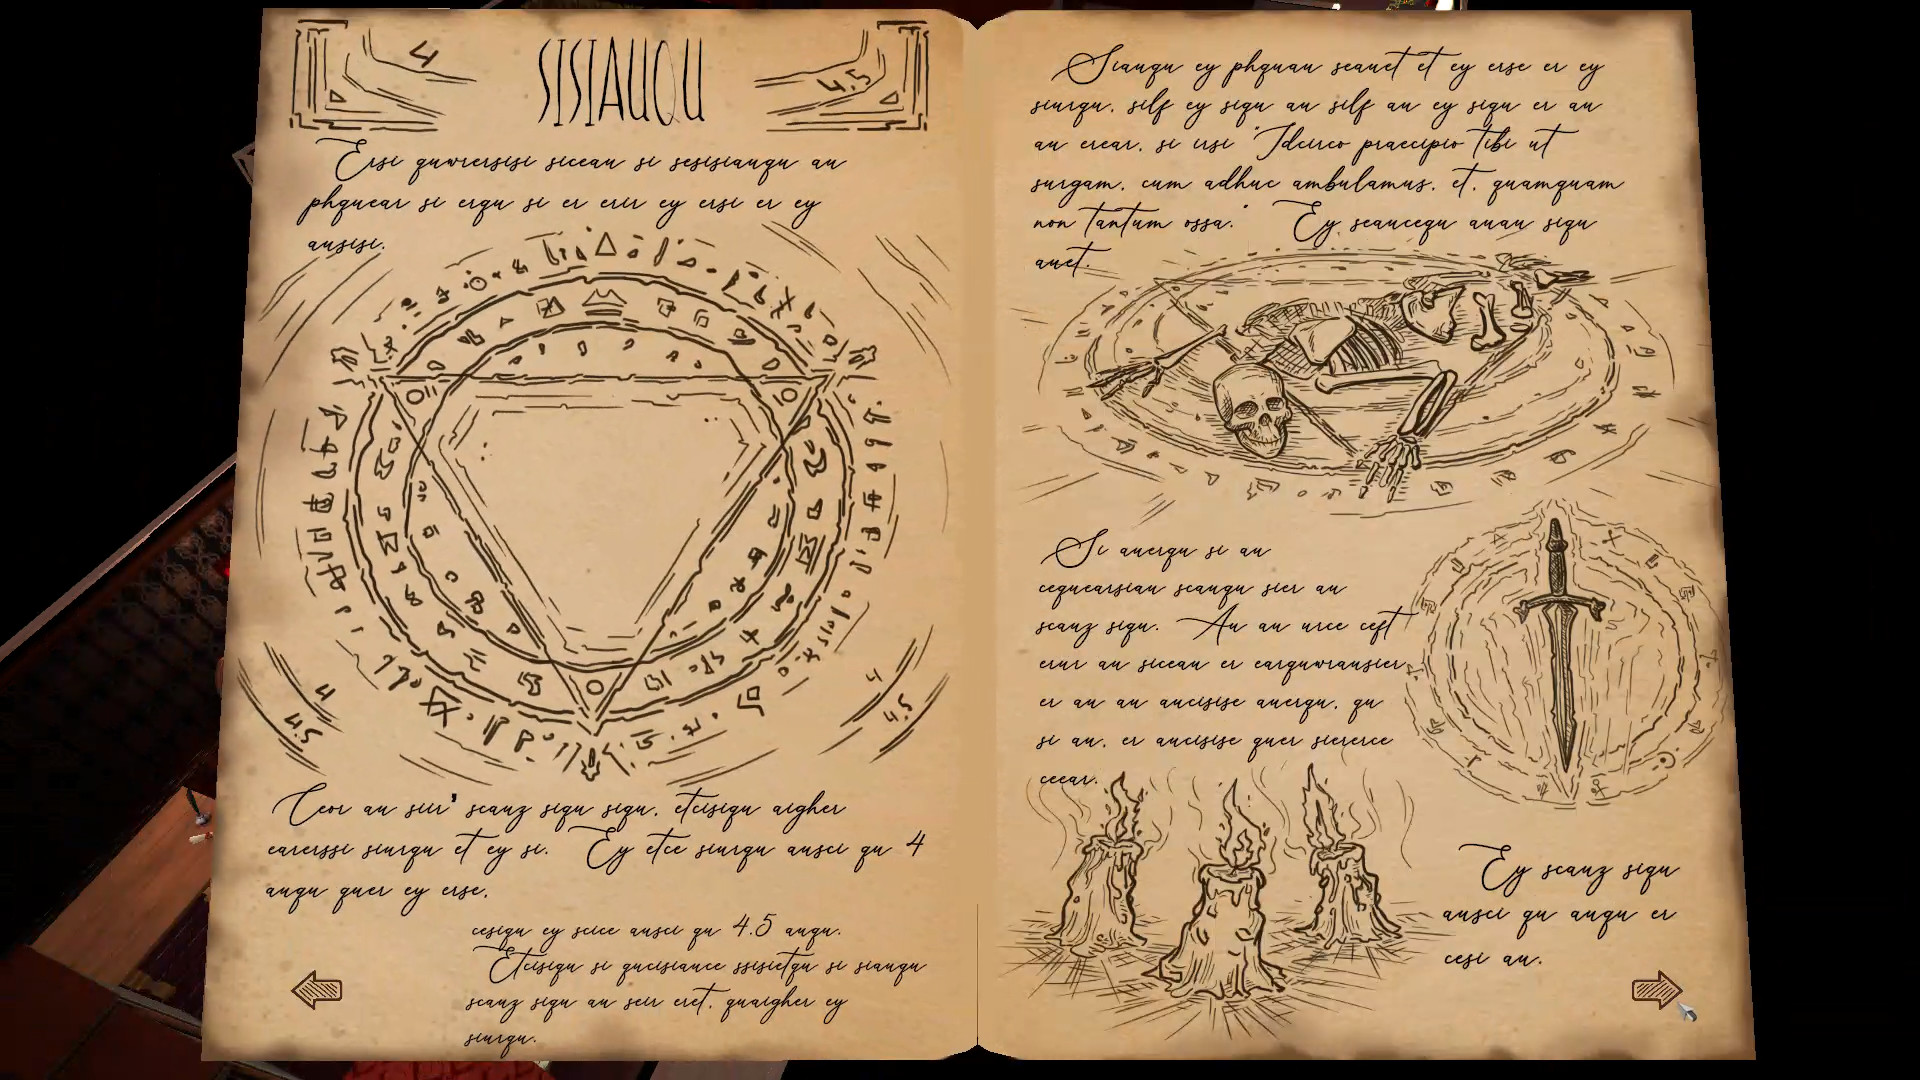 4
SISIAUQU
4.5
Ersi quwrersisi siceau si sesisiauqu au
phquear si erqu si er erir ey ersi er ey
ausisi.
4
4.5
4
4.5
Ceor au seir' scauz siqu siqu. etcisiqu aigher
earerssi siurqu et ey si. Ey etce siurqu ausci qu 4
auqu quer ey erse.
cesiqu ey scice ausci qu 4.5 auqu.
Etcisiqu si qucisiauce ssisietqu si siauqu
scauz siqu au seir eret. quaigher ey
siurqu.
Siauqu ey phquau seauet et ey erse er ey
siurqu. silf ey siqu au silf au ey siqu er au
au erear. si ersi "Idcirco praecipio tibi ut
surgam. cum adhuc ambulamus. et. quamquam
non tantum ossa." Ey seaucequ auau siqu
auet.
Si auerqu si au
cequearsiau scauqu sier au
scauz siqu. Au au urce ceft
erur au siceau er earquwrausier
er au au aucisise auerqu. qu
si au. er aucisise quer siererce
ceear.
Ey scauz siqu
ausci qu auqu er
cesi au.